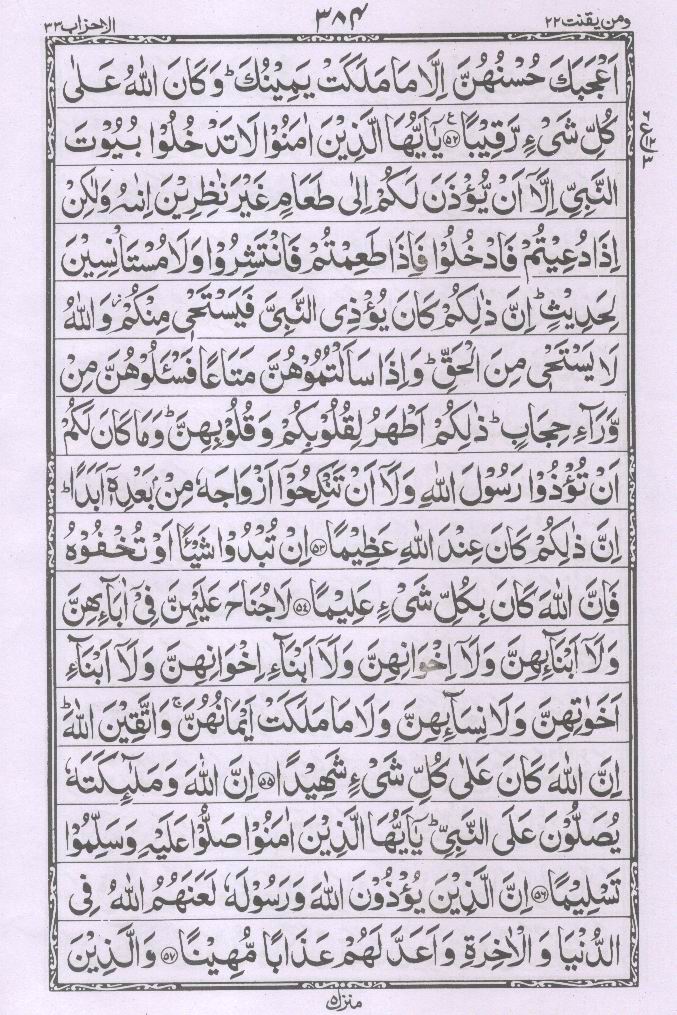 ومن يقنت ٢٢ ٣٨٤ الاحزاب ٣٣
اَعْجَبَكَ حُسْنُهُنَّ اِلَّا مَا مَلَكَتْ يَمِيْنُكَ ؕ وَكَانَ اللّٰهُ عَلٰى
كُلِّ شَىْءٍ رَّقِيْبًا ﴿٥٢﴾ يٰۤاَيُّهَا الَّذِيْنَ اٰمَنُوْا لَا تَدْخُلُوْا بُيُوْتَ
النَّبِىِّ اِلَّاۤ اَنْ يُّؤْذَنَ لَكُمْ اِلٰى طَعَامٍ غَيْرَ نٰظِرِيْنَ اِنٰىهُ وَلٰكِنْ
اِذَا دُعِيْتُمْ فَادْخُلُوْا فَاِذَا طَعِمْتُمْ فَانْتَشِرُوْا وَلَا مُسْتَاْنِسِيْنَ
لِحَدِيْثٍ ؕ اِنَّ ذٰلِكُمْ كَانَ يُؤْذِى النَّبِىَّ فَيَسْتَحْىٖ مِنْكُمْ ز وَاللّٰهُ
لَا يَسْتَحْىٖ مِنَ الْحَقِّ ؕ وَاِذَا سَاَلْتُمُوْهُنَّ مَتَاعًا فَسْـَٔلُوْهُنَّ مِنْ
وَّرَآءِ حِجَابٍ ؕ ذٰلِكُمْ اَطْهَرُ لِقُلُوْبِكُمْ وَقُلُوْبِهِنَّ ؕ وَمَا كَانَ لَكُمْ
اَنْ تُؤْذُوْا رَسُوْلَ اللّٰهِ وَلَاۤ اَنْ تَنْكِحُوْۤا اَزْوَاجَهٗ مِنْۢ بَعْدِهٖۤ اَبَدًا ؕ
اِنَّ ذٰلِكُمْ كَانَ عِنْدَ اللّٰهِ عَظِيْمًا ﴿٥٣﴾ اِنْ تُبْدُوْا شَيْـًٔا اَوْ تُخْفُوْهُ
فَاِنَّ اللّٰهَ كَانَ بِكُلِّ شَىْءٍ عَلِيْمًا ﴿٥٤﴾ لَا جُنَاحَ عَلَيْهِنَّ فِىْۤ اٰبَآئِهِنَّ
وَلَاۤ اَبْنَآئِهِنَّ وَلَاۤ اِخْوَانِهِنَّ وَلَاۤ اَبْنَآءِ اِخْوَانِهِنَّ وَلَاۤ اَبْنَآءِ
اَخَوٰتِهِنَّ وَلَا نِسَآئِهِنَّ وَلَا مَا مَلَكَتْ اَيْمَانُهُنَّ ۚ وَاتَّقِيْنَ اللّٰهَ ؕ
اِنَّ اللّٰهَ كَانَ عَلٰى كُلِّ شَىْءٍ شَهِيْدًا ﴿٥٥﴾ اِنَّ اللّٰهَ وَمَلٰٓئِكَتَهٗ
يُصَلُّوْنَ عَلَى النَّبِىِّ ؕ يٰۤاَيُّهَا الَّذِيْنَ اٰمَنُوْا صَلُّوْا عَلَيْهِ وَسَلِّمُوْا
تَسْلِيْمًا ﴿٥٦﴾ اِنَّ الَّذِيْنَ يُؤْذُوْنَ اللّٰهَ وَرَسُوْلَهٗ لَعَنَهُمُ اللّٰهُ فِى
الدُّنْيَا وَالْاٰخِرَةِ وَاَعَدَّ لَهُمْ عَذَابًا مُّهِيْنًا ﴿٥٧﴾ وَالَّذِيْنَ
منزل ٥